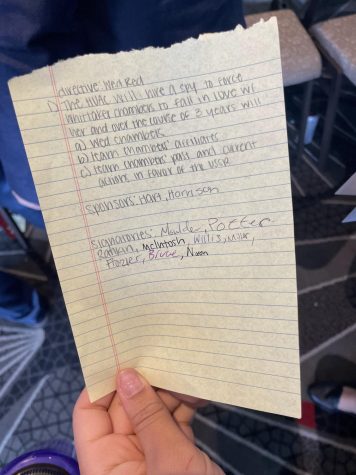 directive: Men Red
1) The HUAC will hire a spy to force
Whittaker Chambers to fall in love w/
her and over the course of 3 years will
a) wed Chambers
b) learn Chambers' affiliates
c) learn Chambers' past and current
actions in favor of the USSR
Sponsors: Hart, Harrison
Signatories: Moulder, Potter
Rankin, McIntosh, Willis, Miller,
Frazier, Bruce, Nixon